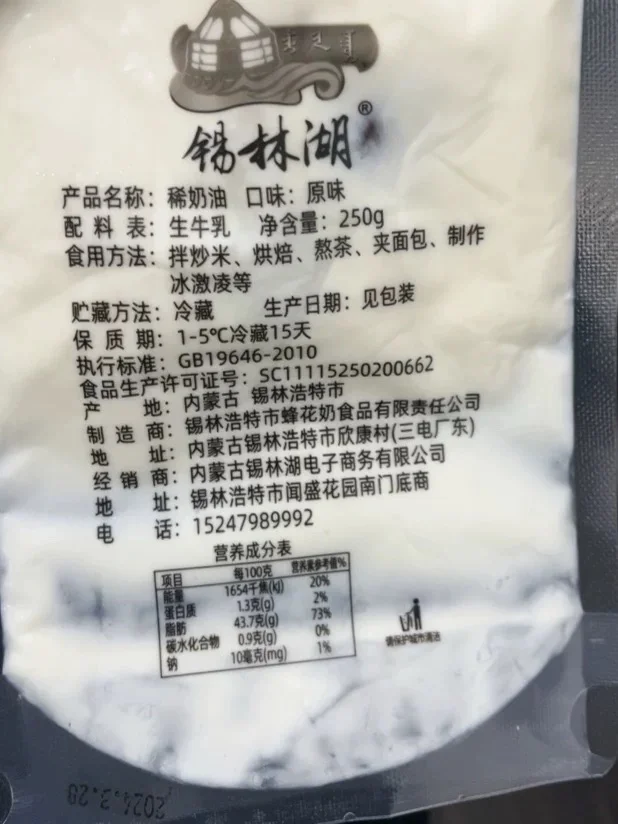 锡林湖®
产品名称：稀奶油 口味：原味
配料表：生牛乳 净含量：250g
食用方法：拌炒米、烘焙、熬茶、夹面包、制作
冰激凌等
贮藏方法：冷藏 生产日期：见包装
保质期：1-5℃冷藏15天
执行标准：GB19646-2010
食品生产许可证号：SC11115250200662
产地：内蒙古 锡林浩特市
制造商：锡林浩特市蜂花奶食品有限责任公司
地址：内蒙古锡林浩特市欣康村(三电厂东)
经销商：内蒙古锡林湖电子商务有限公司
地址：锡林浩特市闻盛花园南门底商
电话：15247989992
营养成分表
项目 每100克 营养素参考值%
能量 1654千焦(kj) 20%
蛋白质 1.3克(g) 2%
脂肪 43.7克(g) 73%
碳水化合物 0.9克(g) 0%
钠 10毫克(mg) 1%
请保护城市清洁
2024.3.28